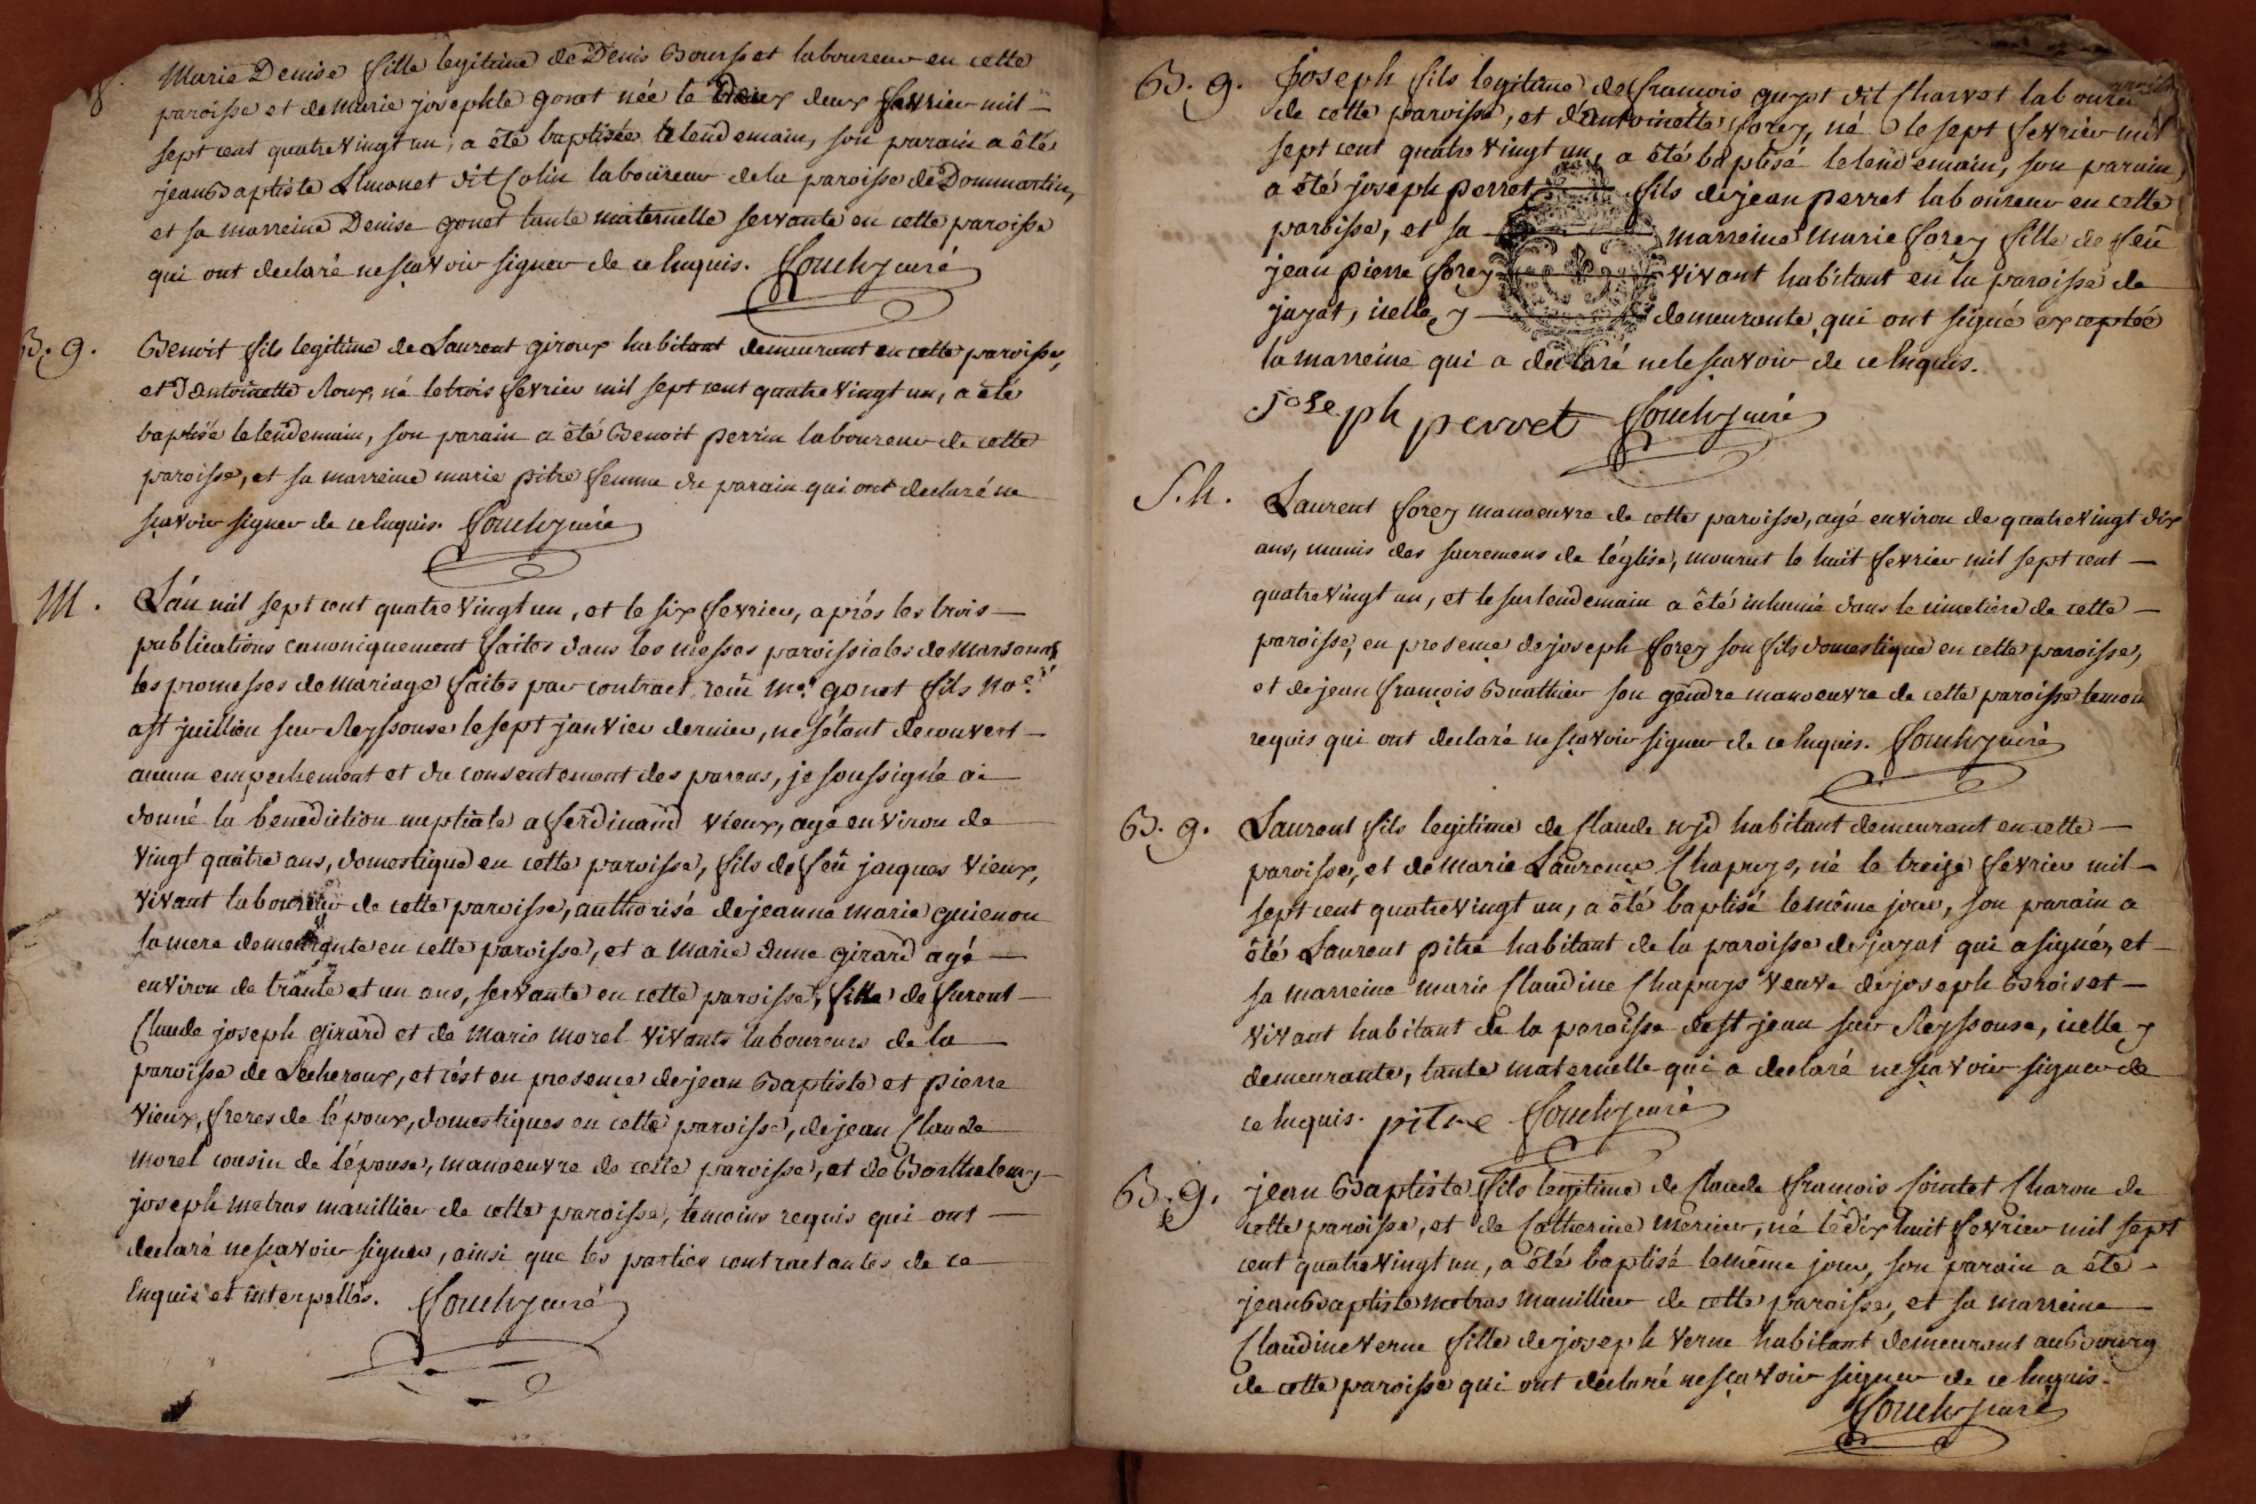 Marie Denise fille legitime de Denis Boursset laboureur en cette
paroisse et de marie josephte gonet née le deux fevrier mil
sept cent quatre vingt un, a été baptisée le lendemain, son parain a été
jean Baptiste dit Colin laboureur de la paroisse de Dommartin,
et sa marreine Denise gonet tante maternelle servante en cette paroisse
qui ont declaré ne sçavoir signer de ce Enquis. curé
B. g.
Benoit fils legitime de Laurent giroux habitant demeurant en cette paroisse,
et D'antoinette Roux, né le trois fevrier mil sept cent quatre vingt un, a été
baptisé le lendemain, son parain a été Benoit perrin laboureur de cette
paroisse, et sa marreine marie pitre femme du parain qui ont declaré ne
sçavoir signer de ce Enquis. curé
M.
L'an mil sept cent quatre vingt un, et le six fevrier, aprés les trois
publications canoniquement faites dans les messes paroissiales de Marsonas
les promesses de mariage faites par contract reçû Me. gonet fils No.re
a st juillien sur Reyssouse le sept janvier dernier, ne s'étant decouvert
aucun empechement et du consentement des parens, je soussigné ai
donné la benediction nuptiale a ferdinand vieux, agé environ de
vingt quatre ans, domestique en cette paroisse, fils de feû jacques vieux,
vivant laboureur de cette paroisse, authorisé de jeanne marie guienon
sa mere demeurante en cette paroisse, et a marie anne girard agé
environ de trante et un ans, servante en cette paroisse, fille de furent
Claude joseph girard et de marie morel vivants laboureurs de la
paroisse de Lecheroux, et c'est en presence de jean Baptiste et pierre
vieux, freres de l'époux, domestiques en cette paroisse, de jean Claude
morel cousin de l'épouse, manoeuvre de cette paroisse, et de Barthelemy
joseph metras manillier de cette paroisse, temoins requis qui ont
declaré ne sçavoir signer, ainsi que les parties contractantes de ce
Enquis et interpellés. curé
B. g.
joseph fils legitime de françois guyot dit Charvet laboureur
de cette paroisse, et d'antoinette forey, né le sept fevrier mil
sept cent quatre vingt un, a été baptisé le lendemain, son parain
a été joseph perret fils de jean perret laboureur en cette
paroisse, et sa marreine marie forey fille de feû
jean pierre forey vivant habitant en la paroisse de
jayat, icelle y demeurante qui ont signé exceptée
la marreine qui a declaré ne le sçavoir de ce Enquis.
joseph perret curé
S. h.
Laurent forey manoeuvre de cette paroisse, agé environ de quatre vingt dix
ans, munis des sacremens de l'église, mourut le huit fevrier mil sept cent
quatre vingt un, et le surlendemain a été inhumé dans le cimetière de cette
paroisse, en presence de joseph forey son fils domestique en cette paroisse,
et de jean françois Buathier son gendre manoeuvre de cette paroisse temoin
requis qui ont declaré ne sçavoir signer de ce Enquis. curé
B. g.
Laurent fils legitime de Claude habitant demeurant en cette
paroisse, et de marie Laurence Chapuys, né le treize fevrier mil
sept cent quatre vingt un, a été baptisé le même jour, son parain a
été Laurent pitre habitant de la paroisse de jayat qui a signé, et
sa marreine marie Claudine Chapuys veuve de joseph Broiset
vivant habitant de la paroisse de st jean sur Reyssouse, icelle y
demeurante, tante maternelle qui a declaré ne sçavoir signer de
ce Enquis. pitre curé
B. g.
jean Baptiste fils legitime de Claude françois Charon de
cette paroisse, et de Catherine mercier, né le dix huit fevrier mil sept
cent quatre vingt un, a été baptisé le même jour, son parain a été
jean Baptiste metras manillier de cette paroisse, et sa marreine
Claudine verne fille de joseph verne habitant demeurant au Bourg
de cette paroisse qui ont déclaré ne sçavoir signer de ce Enquis.
curé